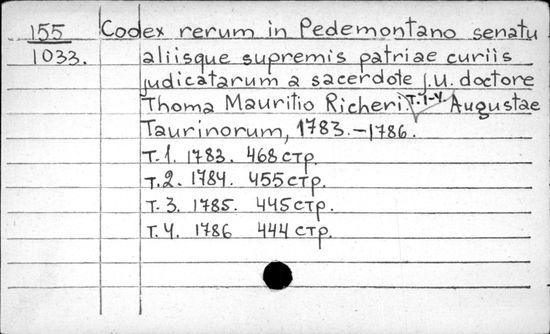 155 Codex rerum in Pedemontano senatu
1033. aliisque supremis patriae curiis
judicatarum a sacerdote j.u. doctore
Thoma Mauritio Richeri. T.1-4. Augustae
Taurinorum, 1783.-1786.
T. 1. 1783. 468 стр.
T. 2. 1784. 455 стр.
T. 3. 1785. 445 стр.
T. 4. 1786 444 стр.